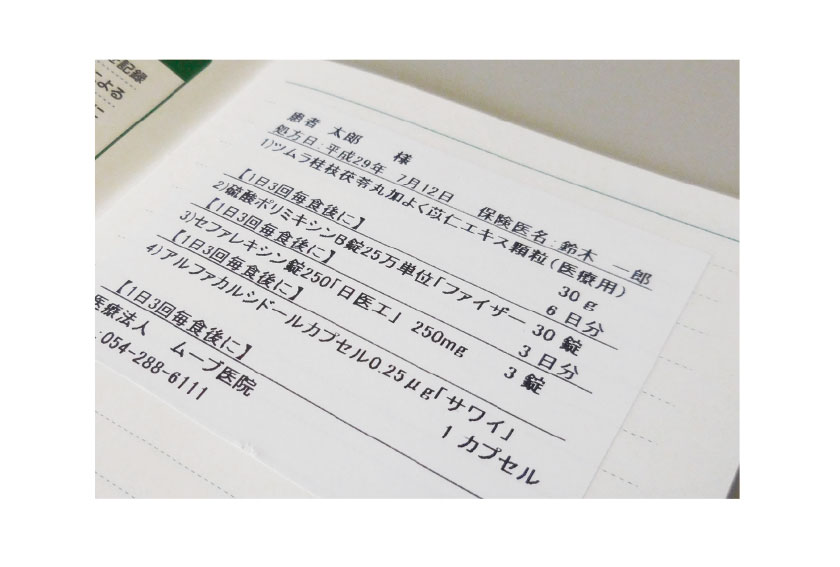 記録
による
に
患者 太郎 様
処方日:平成29年 7月12日 保険医名:鈴木 一郎
1)ツムラ桂枝茯苓丸加よく苡仁エキス顆粒(医療用)
30g
【1日3回毎食後に】 6日分
2)硫酸ポリミキシンB錠25万単位「ファイザー 30錠
【1日3回毎食後に】 3日分
3)セファレキシン錠250「日医工」 250mg 3錠
【1日3回毎食後に】
4)アルファカルシドールカプセル0.25μg「サワイ」
1カプセル
【1日3回毎食後に】
医療法人 ムーブ医院
:054-288-6111